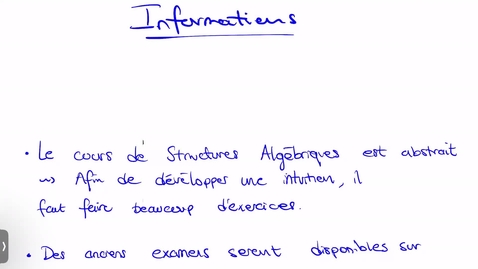 Informations
• Le cours de Structures Algébriques est abstrait
⇝ Afin de développer une intuition, il
faut faire beaucoup d'exercices.
• Des anciens examens seront disponibles sur